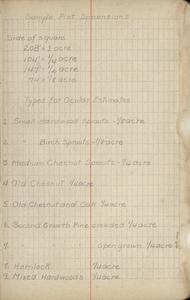 Sample Plot Dimensions
Side of square
208' = 1 acre
104' = 1/4 acre
147' = 1/2 acre
74' = 1/8 acre
Types for Ocular Estimates
1. Small Hardwood Sprouts - 1/8 acre
2. " Birch Sprouts - 1/8 acre
3. Medium Chestnut Sprouts - 1/4 acre
4. Old Chestnut 1/4 acre
5. Old Chestnut and Oak 1/4 acre
6. Second Growth Pine crowded 1/4 acre
7. " open grown 1/4 acre
8. Hemlock 1/4 acre
9. Mixed Hardwoods 1/4 acre